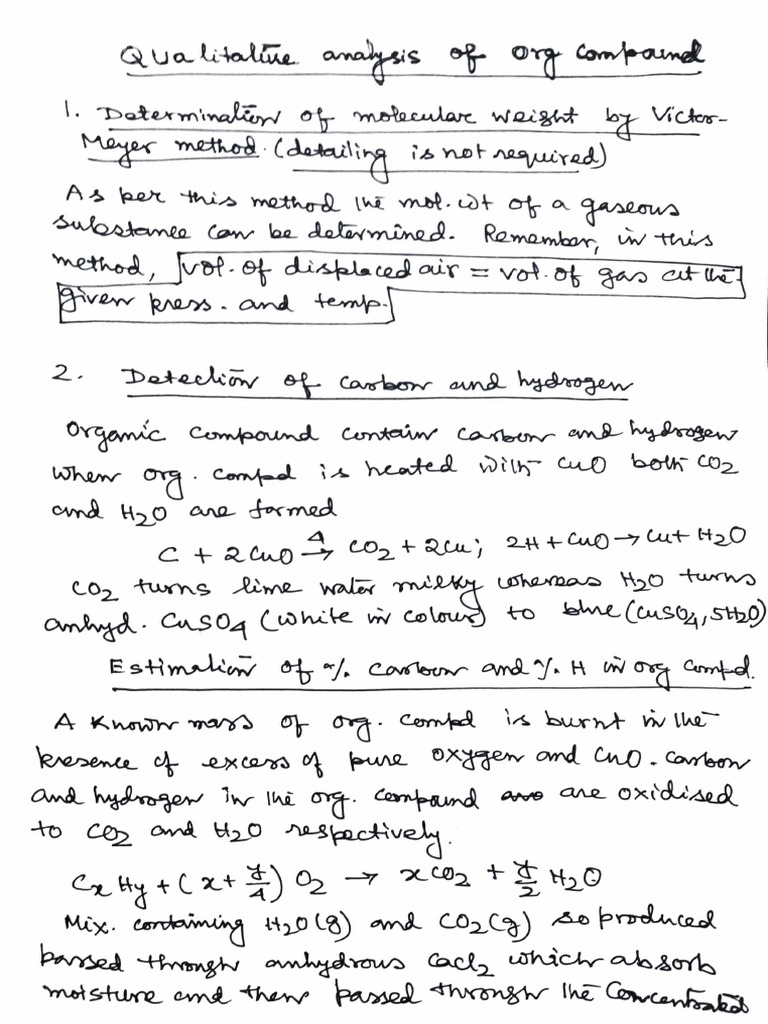 Qualitative analysis of org compound
1. Determination of molecular weight by Victor-
Meyer method. (detailing is not required)
As per this method the mol. wt of a gaseous
substance can be determined. Remember, in this
method, vol. of displaced air = vol. of gas at the
given press. and temp.
2. Detection of carbon and hydrogen
Organic compound contain carbon and hydrogen
when org. compd is heated with CuO both CO2
and H2O are formed
C + 2CuO →Δ CO2 + 2Cu; 2H + CuO → Cu + H2O
CO2 turns lime water milky whereas H2O turns
anhyd. CuSO4 (white in colour) to blue (CuSO4, 5H2O)
Estimation of % carbon and % H in org compd.
A known mass of org. compd is burnt in the
presence of excess of pure oxygen and CuO. carbon
and hydrogen in the org. compound are oxidised
to CO2 and H2O respectively.
CxHy + (x + y/4) O2 → xCO2 + y/2 H2O
Mix. containing H2O(g) and CO2(g) so produced
passed through anhydrous CaCl2 which absorb
moisture and then passed through the concentrated